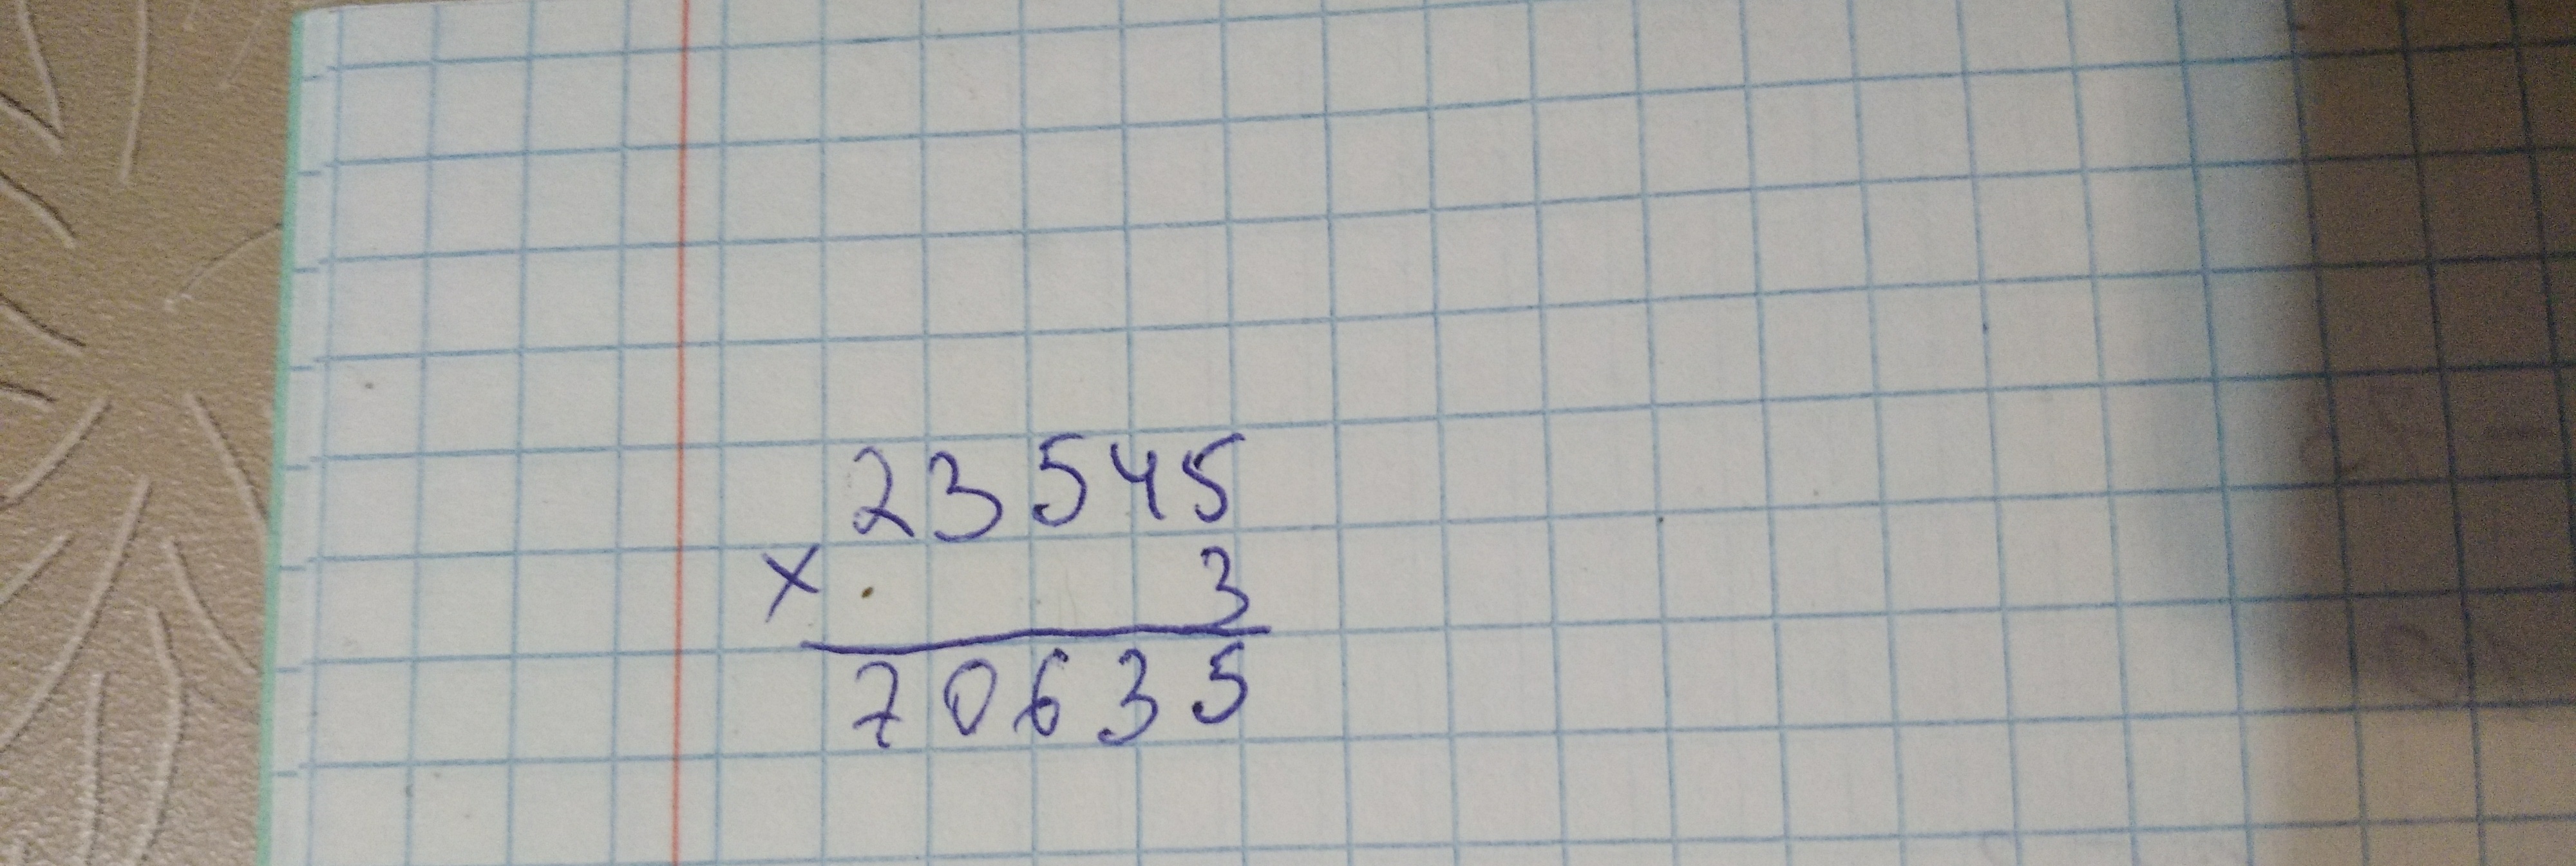 23545
× 3
70635